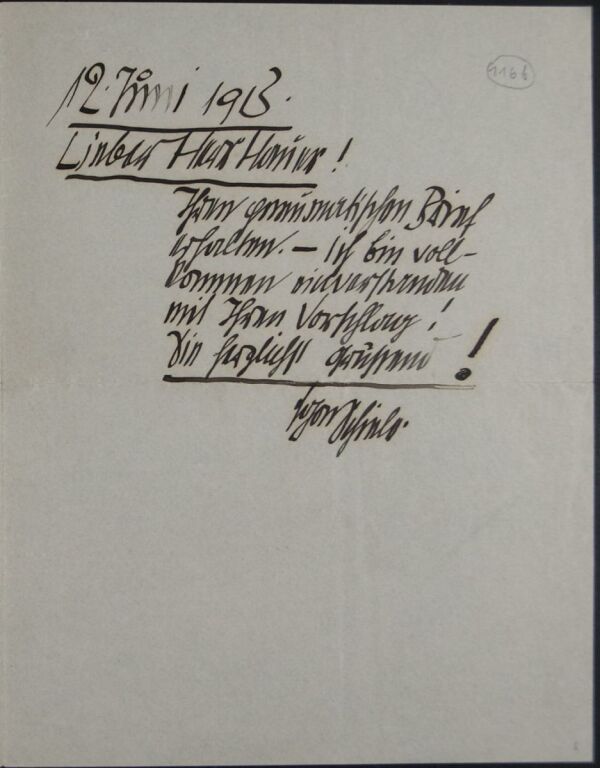 12. Juni 1913.
1166
Lieber Herr Hauer!
Ihren pneumatischen Brief
erhalten. – ich bin voll-
kommen einverstanden
mit Ihren Vorschlag!
Sie herzlichst grüßend!
Egon Schiele.